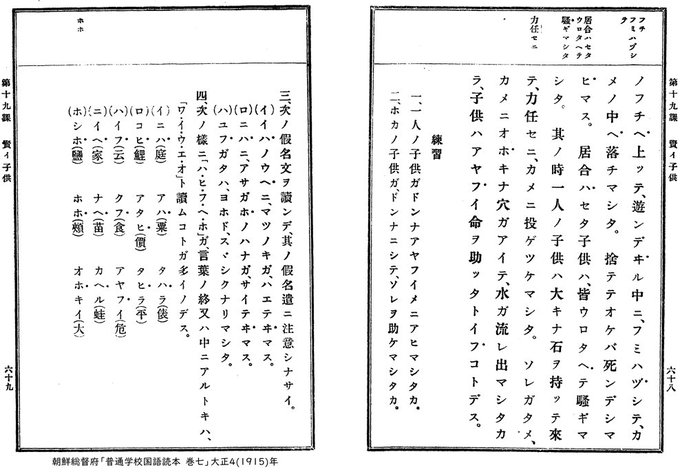 第十九課 賢イ子供
六十八
フチ
フミハヅシ
居合ハセタ
ウロタヘテ
騒ギマシタ
力任セニ
ノフチヘ上ッテ、遊ンデヰル中ニ、フミハヅシテ、カ
メノ中ヘ落チマシタ。捨テテオケバ死ンデシマ
ヒマス。居合ハセタ子供ハ、皆ウロタヘテ騒ギマ
シタ。其ノ時一人ノ子供ハ大キナ石ヲ持ッテ來
テ、力任セニ、カメニ投ゲツケマシタ。ソレガタメ、
カメニオホキナ穴ガアイテ、水ガ流レ出マシタカ
ラ、子供ハアヤフイ命ヲ助ッタトイフコトデス。
練習
一、一人ノ子供ガドンナアヤフイメニアヒマシタカ。
二、ホカノ子供ガ、ドンナニシテ、ソレヲ助ケマシタカ。
ホホ
三、次ノ假名文ヲ讀ンデ、其ノ假名遣ニ注意シナサイ。
(イ)イハノウヘニ、マツノキガ、ハエテヰマス。
(ロ)ニハニ、アサガホノハナガ、サイテヰマス。
(ハ)ユフガタハ、ヨホド、スヾシクナリマシタ。
四、次ノ樣ニ「ハ・ヒ・フ・ヘ・ホ」ガ、言葉ノ終又ハ中ニアルトキハ、
「ワ・イ・ウ・エ・オ」ト讀ムコトガ多イノデス。
(イ)ニハ(庭) アハ(粟) タハラ(俵)
(ロ)コヒ(鯉) アタヒ(價) タヒラ(平)
(ハ)イフ(云) クフ(食) アヤフイ(危)
(ニ)イヘ(家) ナヘ(苗) カヘル(蛙)
(ホ)シホ(鹽) ホホ(頰) オホキイ(大)
第十九課 賢イ子供
六十九
朝鮮総督府「普通学校国語読本 巻七」大正4(1915)年